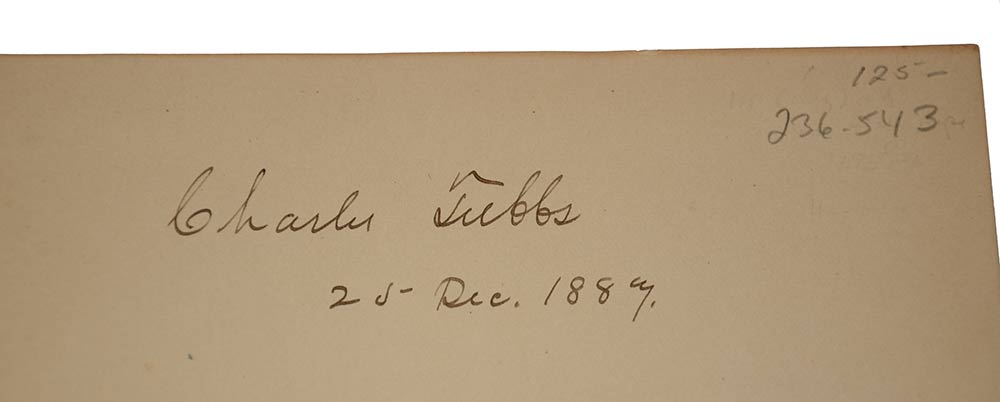 125-
236-543
Charles Tubbs
25 Dec. 1887.